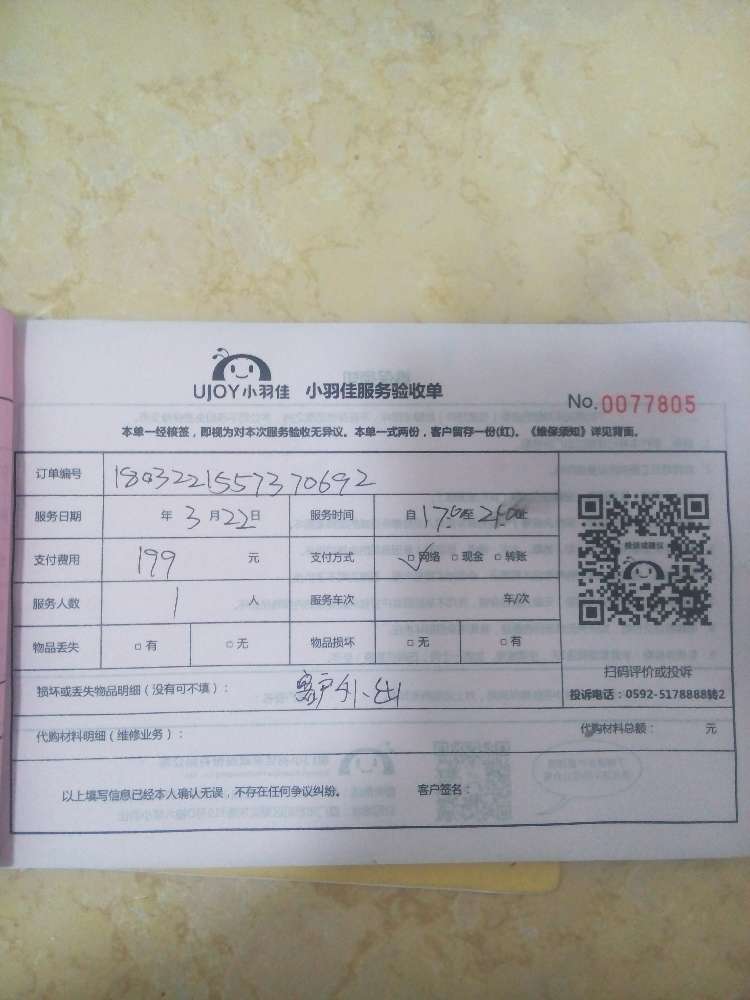 UJOY小羽佳 小羽佳服务验收单
No.0077805
本单一经核签，即视为对本次服务验收无异议。本单一式两份，客户留存一份(红)。《维保须知》详见背面。
订单编号 1803221557370692
服务日期 年 3月22日 服务时间 自17:0至21:0止
支付费用 199 元 支付方式 □网络 □现金 □转账
服务人数 1 人 服务车次 车/次
物品丢失 □有 □无 物品损坏 □无 □有
扫码评价或投诉
投诉电话：0592-5178888转2
损坏或丢失物品明细（没有可不填）： 客户外出
代购材料明细（维修业务）： 代购材料总额： 元
以上填写信息已经本人确认无误，不存在任何争议纠纷。 客户签名：